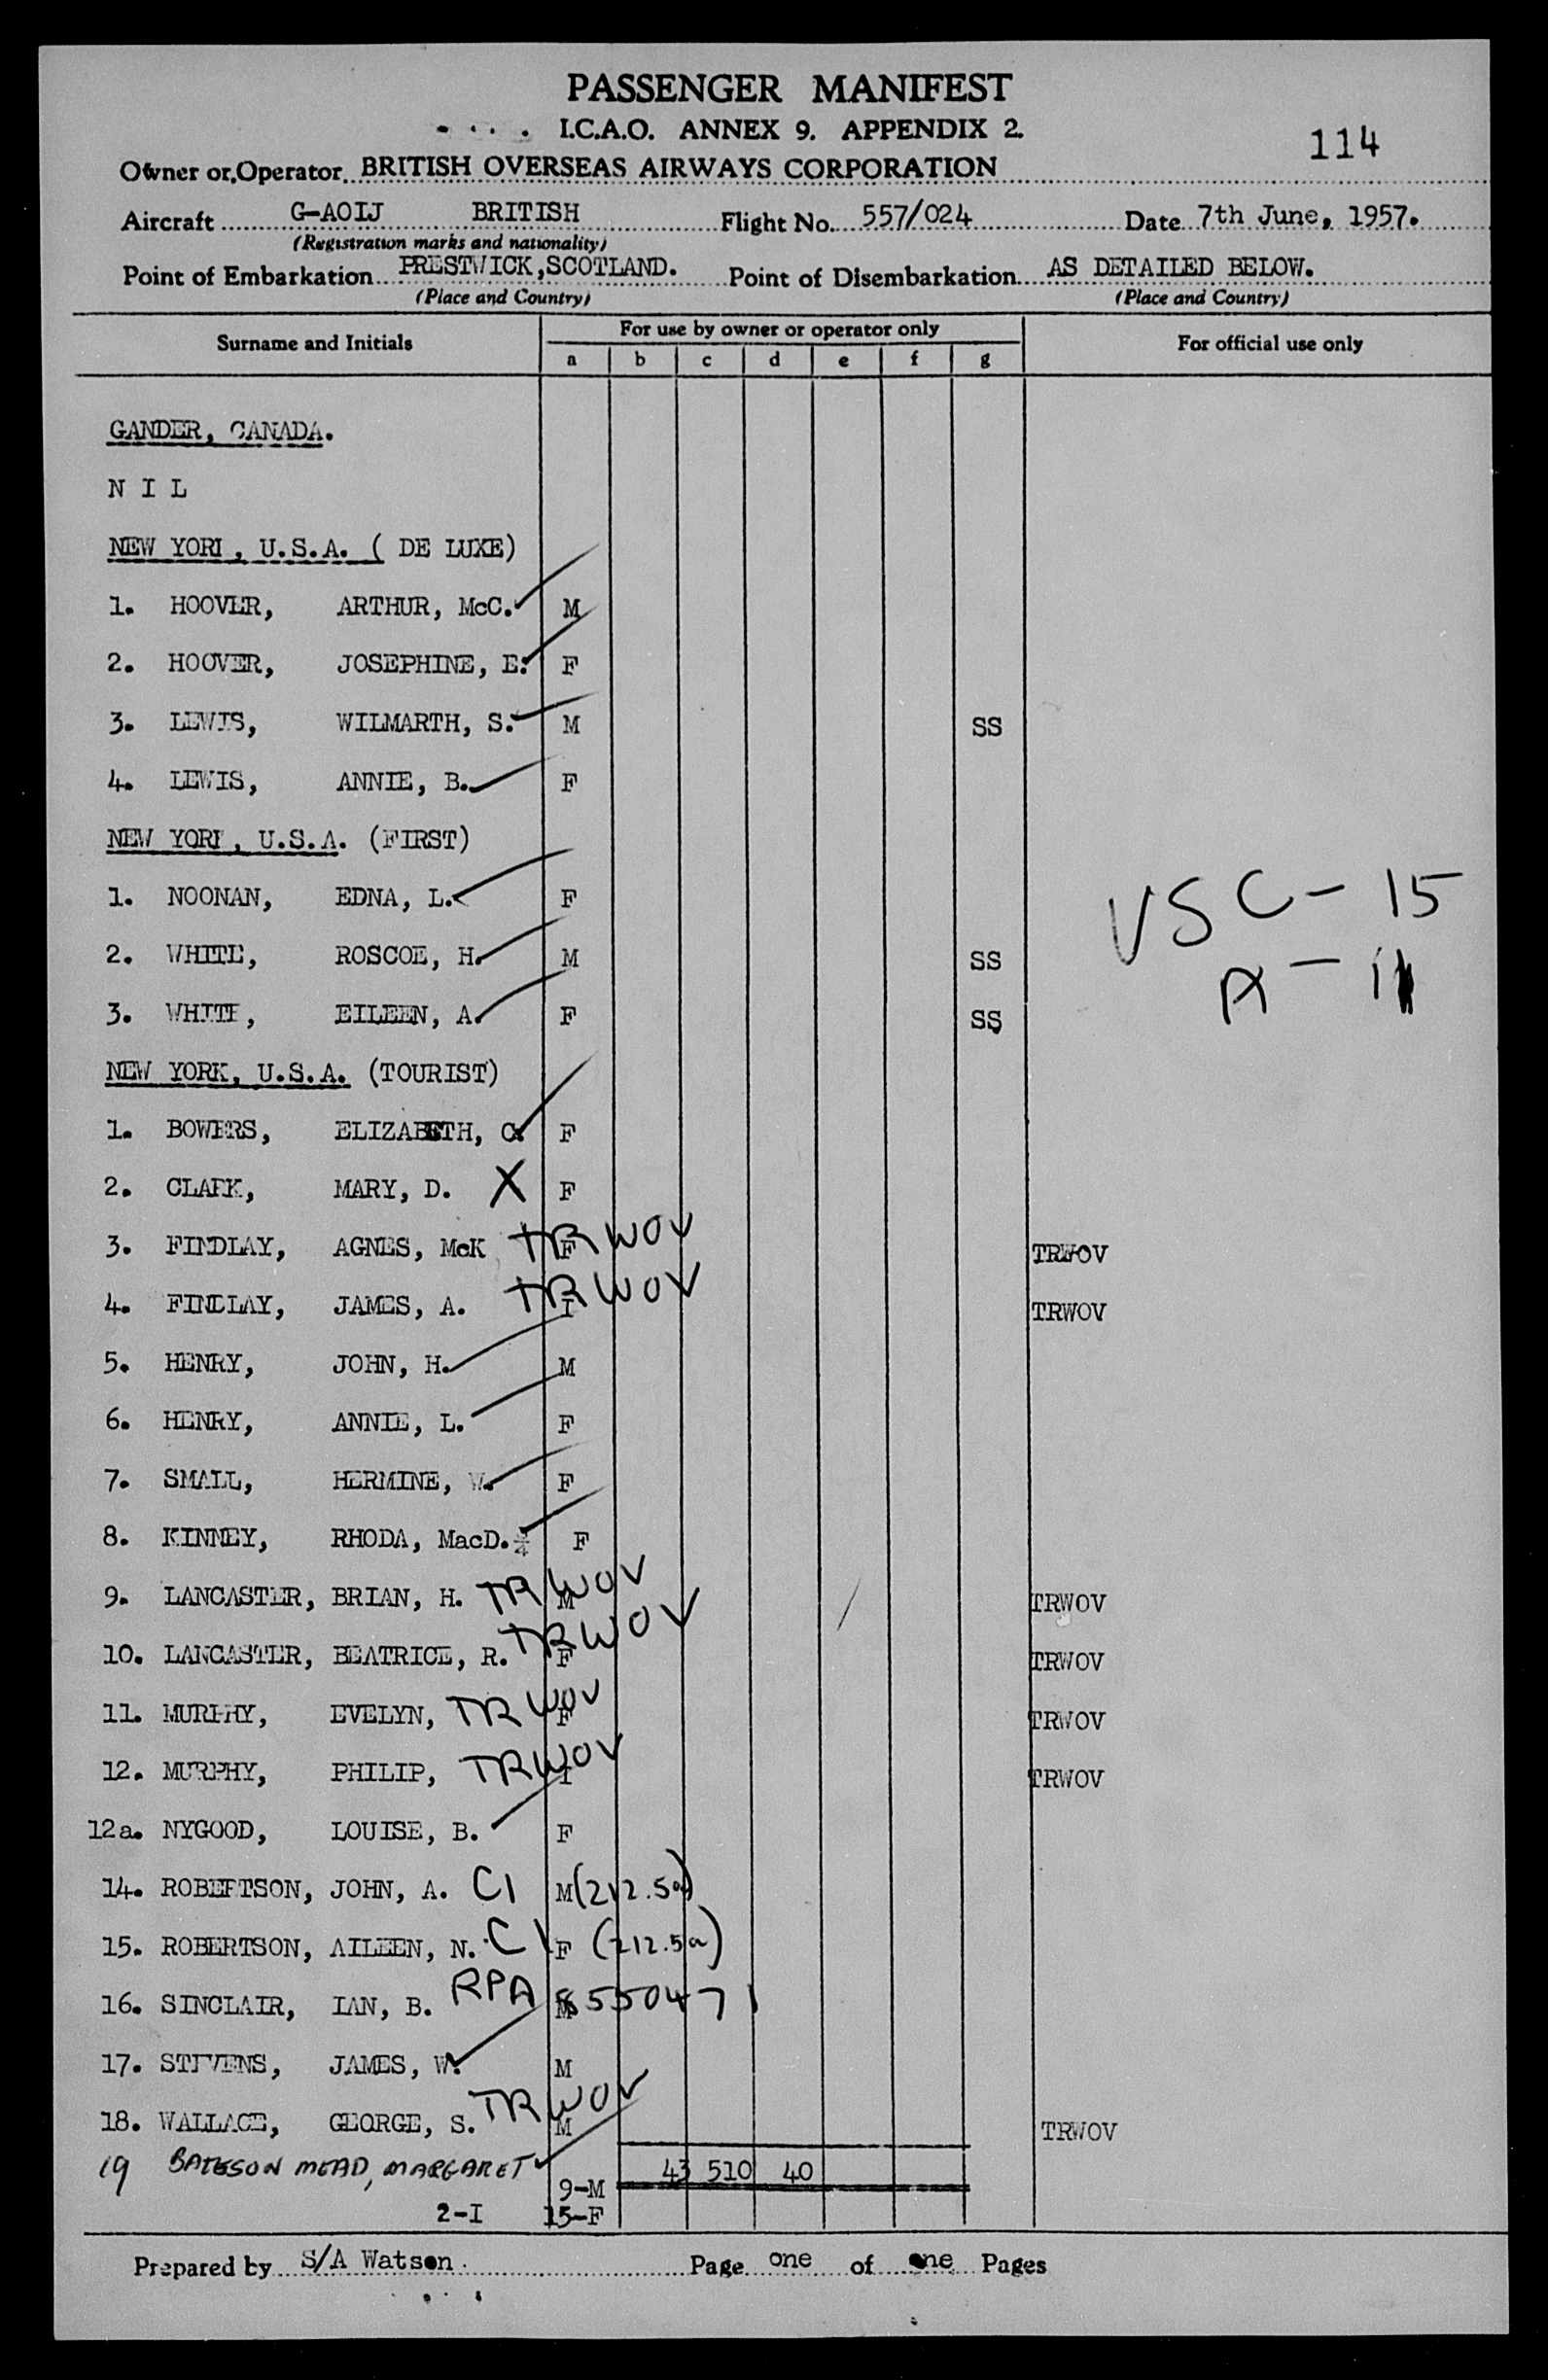 PASSENGER MANIFEST
I.C.A.O. ANNEX 9. APPENDIX 2.
114
Owner or Operator BRITISH OVERSEAS AIRWAYS CORPORATION
Aircraft G-AOIJ BRITISH Flight No. 557/024 Date 7th June, 1957.
(Registration marks and nationality)
Point of Embarkation PRESTWICK,SCOTLAND. Point of Disembarkation AS DETAILED BELOW.
(Place and Country) (Place and Country)
Surname and Initials For use by owner or operator only For official use only
a b c d e f g
GANDER, CANADA.
N I L
NEW YORK, U.S.A. ( DE LUXE)
1. HOOVER, ARTHUR, McC. M
2. HOOVER, JOSEPHINE, E. F
3. LEWIS, WILMARTH, S. M SS
4. LEWIS, ANNIE, B. F
NEW YORK, U.S.A. (FIRST)
1. NOONAN, EDNA, L. F
USC - 15
2. WHITE, ROSCOE, H. M SS
A - 11
3. WHITE, EILEEN, A. F SS
NEW YORK, U.S.A. (TOURIST)
1. BOWERS, ELIZABETH, C. F
2. CLARK, MARY, D. X F
3. FINDLAY, AGNES, McK TRWOV F TRWOV
4. FINDLAY, JAMES, A. TRWOV I TRWOV
5. HENRY, JOHN, H. M
6. HENRY, ANNIE, L. F
7. SMALL, HERMINE, W. F
8. KINNEY, RHODA, MacD. F
9. LANCASTER, BRIAN, H. TRWOV M TRWOV
10. LANCASTER, BEATRICE, R. TRWOV F TRWOV
11. MURPHY, EVELYN, TRWOV F TRWOV
12. MURPHY, PHILIP, TRWOV I TRWOV
12a. NYGOOD, LOUISE, B. F
14. ROBERTSON, JOHN, A. C1 M (212.5a)
15. ROBERTSON, AILEEN, N. C1 F (212.5a)
16. SINCLAIR, IAN, B. RPA M 8550471
17. STEVENS, JAMES, W. M
18. WALLACE, GEORGE, S. TRWOV M TRWOV
19 BATESON MEAD, MARGARET
43 510 40
9-M
2-I 15-F
Prepared by S/A Watson. Page one of one Pages